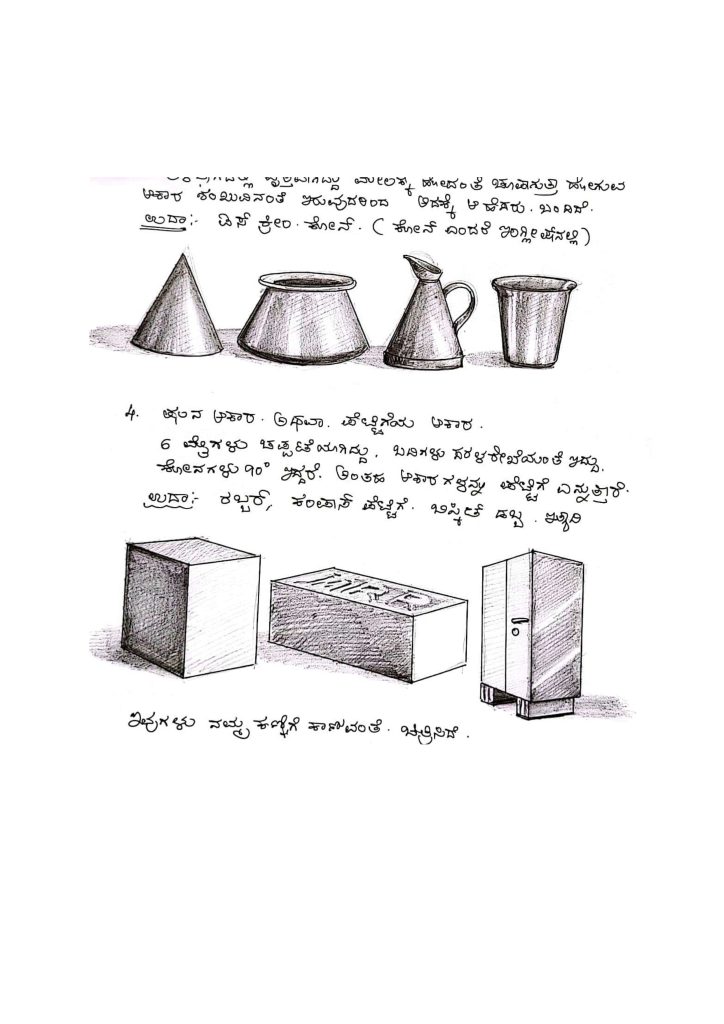 ವೃತ್ತವಾಗಿದ್ದು ಮೇಲಕ್ಕೆ ಹೋದಂತೆ ಚೂಪಾಗುತ್ತಾ ಹೋಗುವ
ಆಕಾರ ಶಂಖುವಿನಂತೆ ಇರುವುದರಿಂದ ಇದಕ್ಕೆ ಆ ಹೆಸರು. ಬಂದಿದೆ.
ಉದಾ:- ಐಸ್ ಕ್ರೀಂ. ಕೋನ್. ( ಕೋನ್ ಎಂದರೆ ಇಂಗ್ಲೀಷ್‌ನಲ್ಲಿ )
4. ಘನ ಆಕಾರ. ಅಥವಾ. ಪೆಟ್ಟಿಗೆಯ ಆಕಾರ.
6 ಮೈಗಳು ಚಪ್ಪಟೆಯಾಗಿದ್ದು, ಬದಿಗಳು ಸರಳರೇಖೆಯಂತೆ ಇದ್ದು.
ಕೋನಗಳು 90° ಇದ್ದರೆ. ಅಂತಹ ಆಕಾರಗಳನ್ನು ಪೆಟ್ಟಿಗೆ ಎನ್ನುತ್ತಾರೆ.
ಉದಾ:- ರಬ್ಬರ್, ಕಂಪಾಸ್ ಪೆಟ್ಟಿಗೆ. ಬಿಸ್ಕೀಟ್ ಡಬ್ಬ. ಇತ್ಯಾದಿ
MRR
ಇವುಗಳು ನಮ್ಮ ಕಣ್ಣಿಗೆ ಕಾಣುವಂತೆ. ಚಿತ್ರಿಸಿದೆ.